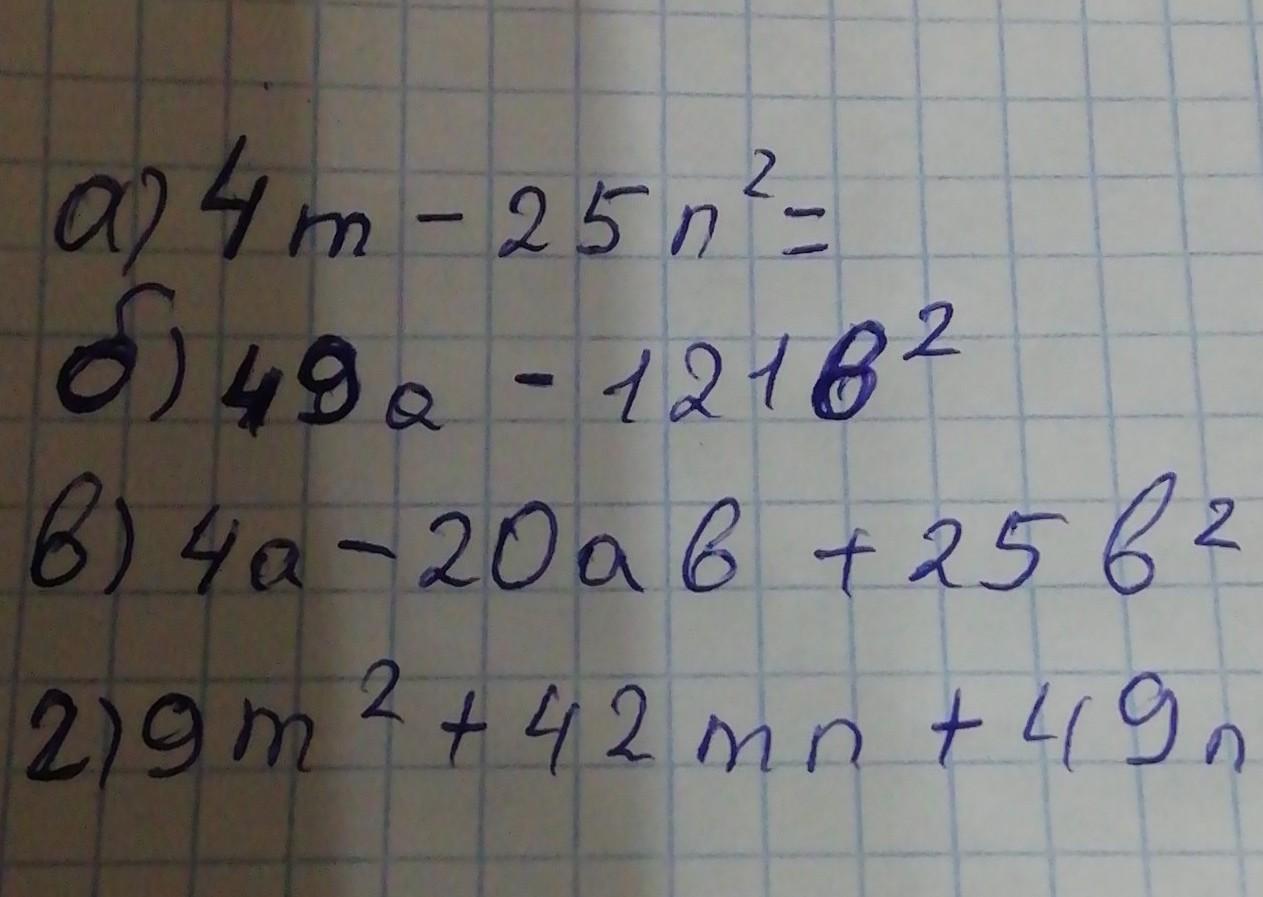 а) 4m - 25n² =
б) 49a - 121в²
в) 4a - 20aв + 25в²
г) 9m² + 42mn + 49n